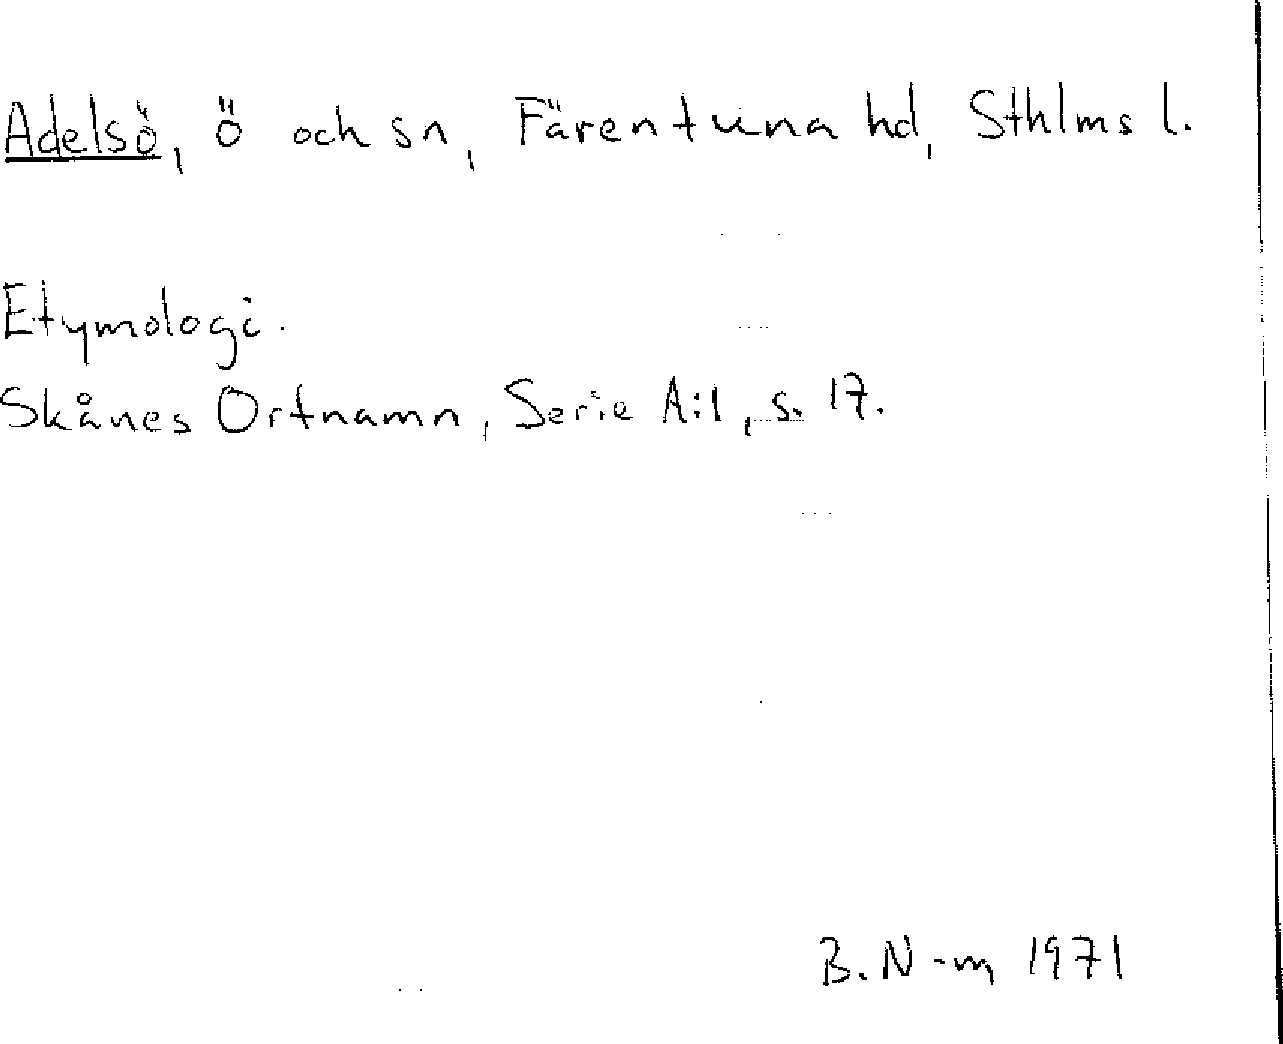 Adelsö, ö och sn, Färentuna hd, Sthlms l.
Etymologi.
Skånes Ortnamn, Serie A:1, s. 17.
B. N-m 1971